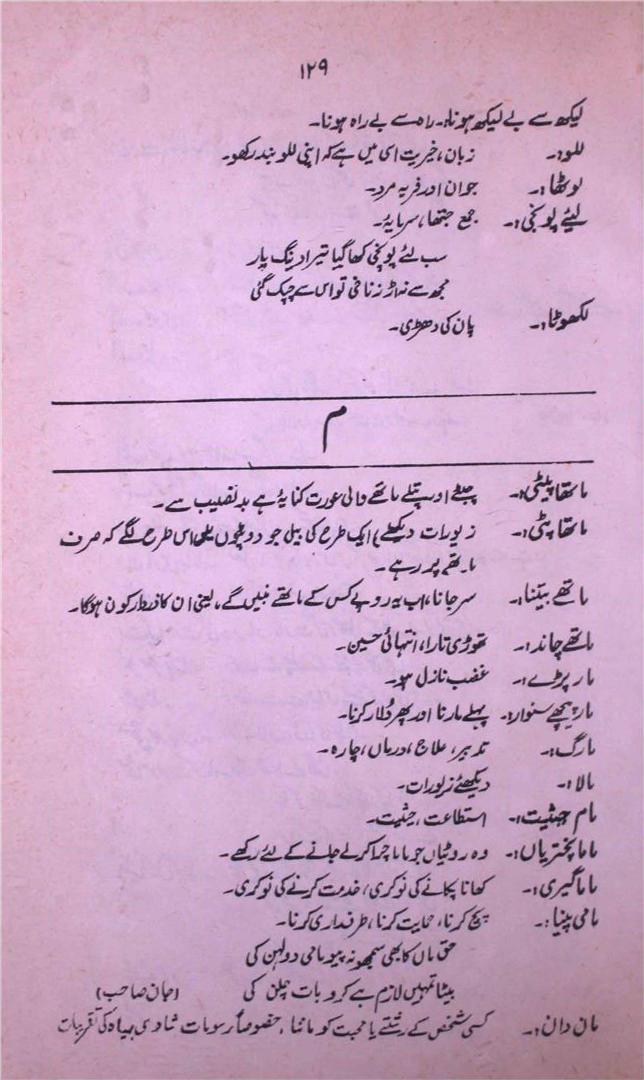 ۱۲۹
لیکھ سے بے لیکھ ہونا:۔ راہ سے بے راہ ہونا۔
للو:۔ زبان، خیریت اسی میں ہے کہ اپنی للو بند رکھو۔
لوٹھا:۔ جوان اور فربہ مرد۔
لیئے پونجی:۔ جمع جتھا، سرمایہ۔
سب لئے پونجی کھا گیا تیرا دبنگ یار
مجھ سے نہاڑ زناخی تو اس سے چپک گئی
لکھوٹا:۔ پان کی دھڑی۔
م
ماتھا پیٹی:۔ چپٹے اور پتلے ماتھے والی عورت کنایۃً ہے بد نصیب سے۔
ماتھا پٹی:۔ زیورات دیکھئے ایک طرح کی بیل جو دوپٹوں میں اس طرح لگے کہ صرف
ماتھے پر رہے۔
ماتھے بیتنا:۔ سر جانا، اب یہ روپے کس کے ماتھے بیتیں گے، یعنی ان کا ذمہ دار کون ہوگا۔
ماتھے چاند:۔ تھوڑی تارا، انتہائی حسین۔
مار پڑے:۔ غضب نازل ہو۔
مار پیچھے سنوار:۔ پہلے مارنا اور پھر دُلار کرنا۔
مارگ:۔ تدبیر، علاج، درماں، چارہ۔
مالا:۔ دیکھئے زیورات۔
مام حیثیت:۔ استطاعت، حیثیت۔
ماما پختریاں:۔ وہ روٹیاں جو ماما چرا کر لے جانے کے لئے رکھے۔
ماما گیری:۔ کھانا پکانے کی نوکری، خدمت کرنے کی نوکری۔
مامی پینا:۔ پچ کرنا، حمایت کرنا، طرفداری کرنا۔
حق ماں کا بھی سمجھو نہ پیو مامی دولہن کی
بیٹا تمہیں لازم ہے کرو بات چلن کی (جان صاحب)
مان دان:۔ کسی شخص کے رشتے یا محبت کو ماننا، خصوصاً رسومات شادی بیاہ کی تقریبات